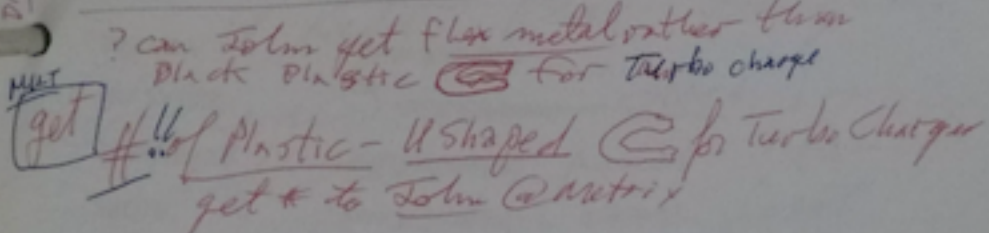 ? can John get flex metal rather than
Black Plastic for Turbo charge
MUST
get #!! of Plastic - U Shaped for Turbo Charger
get # to John @ Metrix